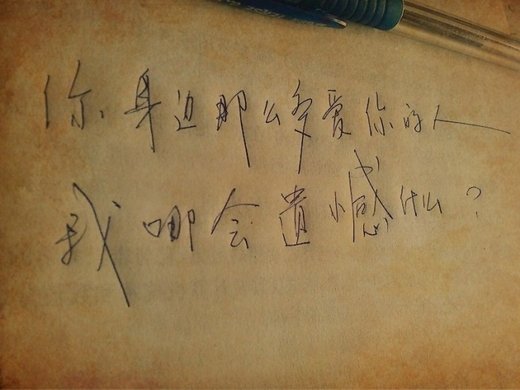 你身边那么多爱你的人
我哪会遗憾什么？